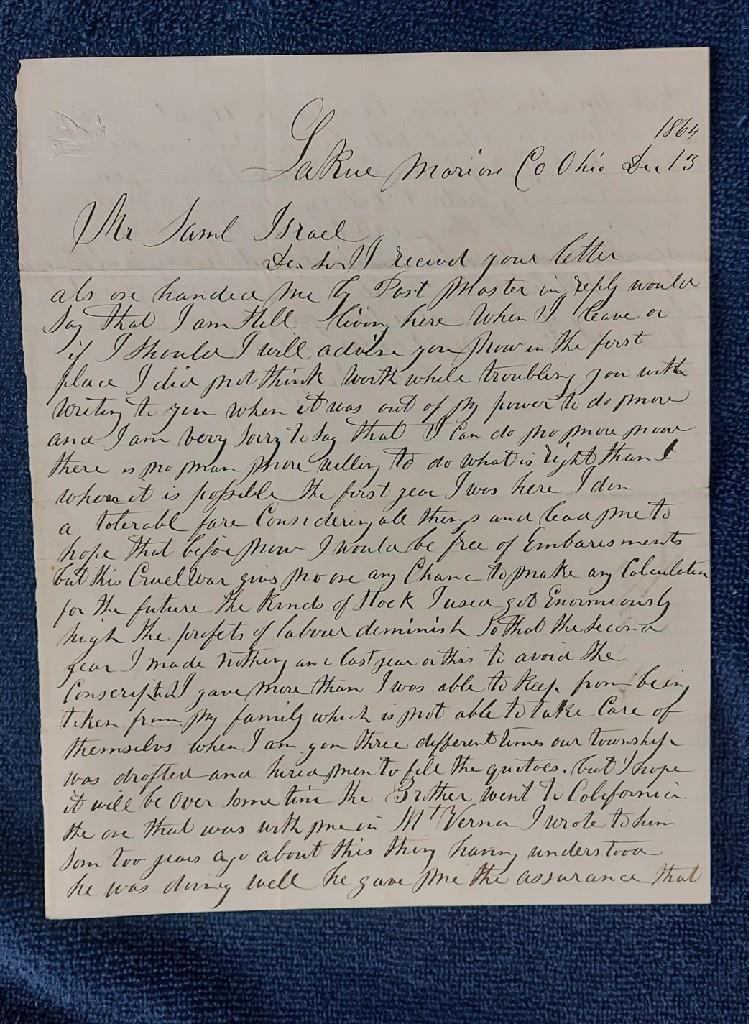 1864
LaRue Marion Co Ohio Dec 13
Mr Saml Israel
Dear Sir I receivd your letter
als one handed me by Post Master in reply would
say that I am still living here when I leave or
if I should I will advise you now in the first
place I did not think worth while troubling you with
writing to you when it was out of my power to do more
and I am very sorry to say that I can do no more now
there is no man more willing to do what is right than I
when it is possible the first year I was here I don
a tolerable fare Considering all things and lead me to
hope that befor now I would be free of Embaresments
but this Cruel War givs no one any Chance to make any Calculation
for the future the kinds of Stock I used got Enormously
high the profets of labour deminish so that the second
year I made nothing and last year or this to avoid the
Conscript I gave more than I was able to keep from bein
taken from my family which is not able to take Care of
themselvs when I am gon three different times our township
was drafted and hired men to fill the quotoes. but I hope
it will be over some time the Brther went to California
the one that was with me in Mt Vernon I wrote to him
som too years ago about this thing having understood
he was doing well he gave me the assurance that